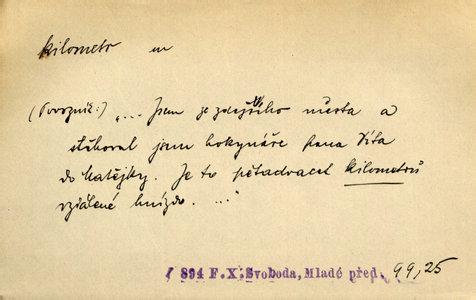 kilometr m
(Povozník:) „... Jsem ze zdejšího města a
stěhoval jsem hokynáře pana Víta
do Matějky. Je to pětadvacet kilometrů
vzdálené hnízdo. ..."
894 F. X. Svoboda, Mladé před. 99,25